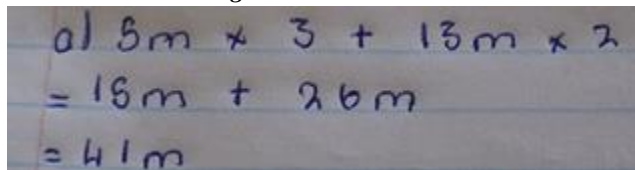 a) 5m × 3 + 13m × 2
= 15m + 26m
= 41m